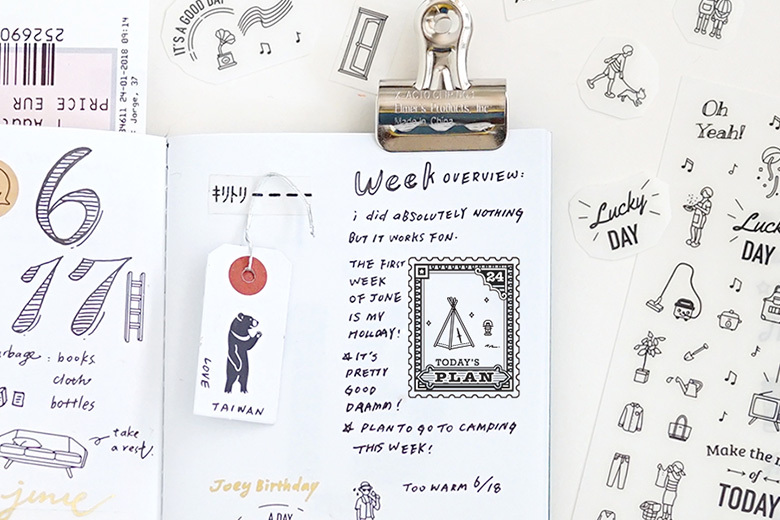 IT'S A GOOD DAY
252690
PRICE EUR
24-01-2018 09:14
Jorge, 37
X-ACTO
Made in China
6
17
books
cloth
bottles
take
a rest.
june
キリトリ
LOVE
TAIWAN
Joey Birthday
A DAY
Week OVERVIEW:
i did ABSOLUTELY NOTHING
BUT IT WORKS FON.
THE FIRST
WEEK
OF JUNE
IS MY
HOLIDAY!
IT'S
PRETTY
GOOD
DRAMM!
PLAN TO GO TO CAMPING
THIS WEEK!
TOO WARM 6/18
24
TODAY'S
PLAN
Oh
Yeah!
Lucky
DAY
Luc
DAY
Make the
of
TODAY